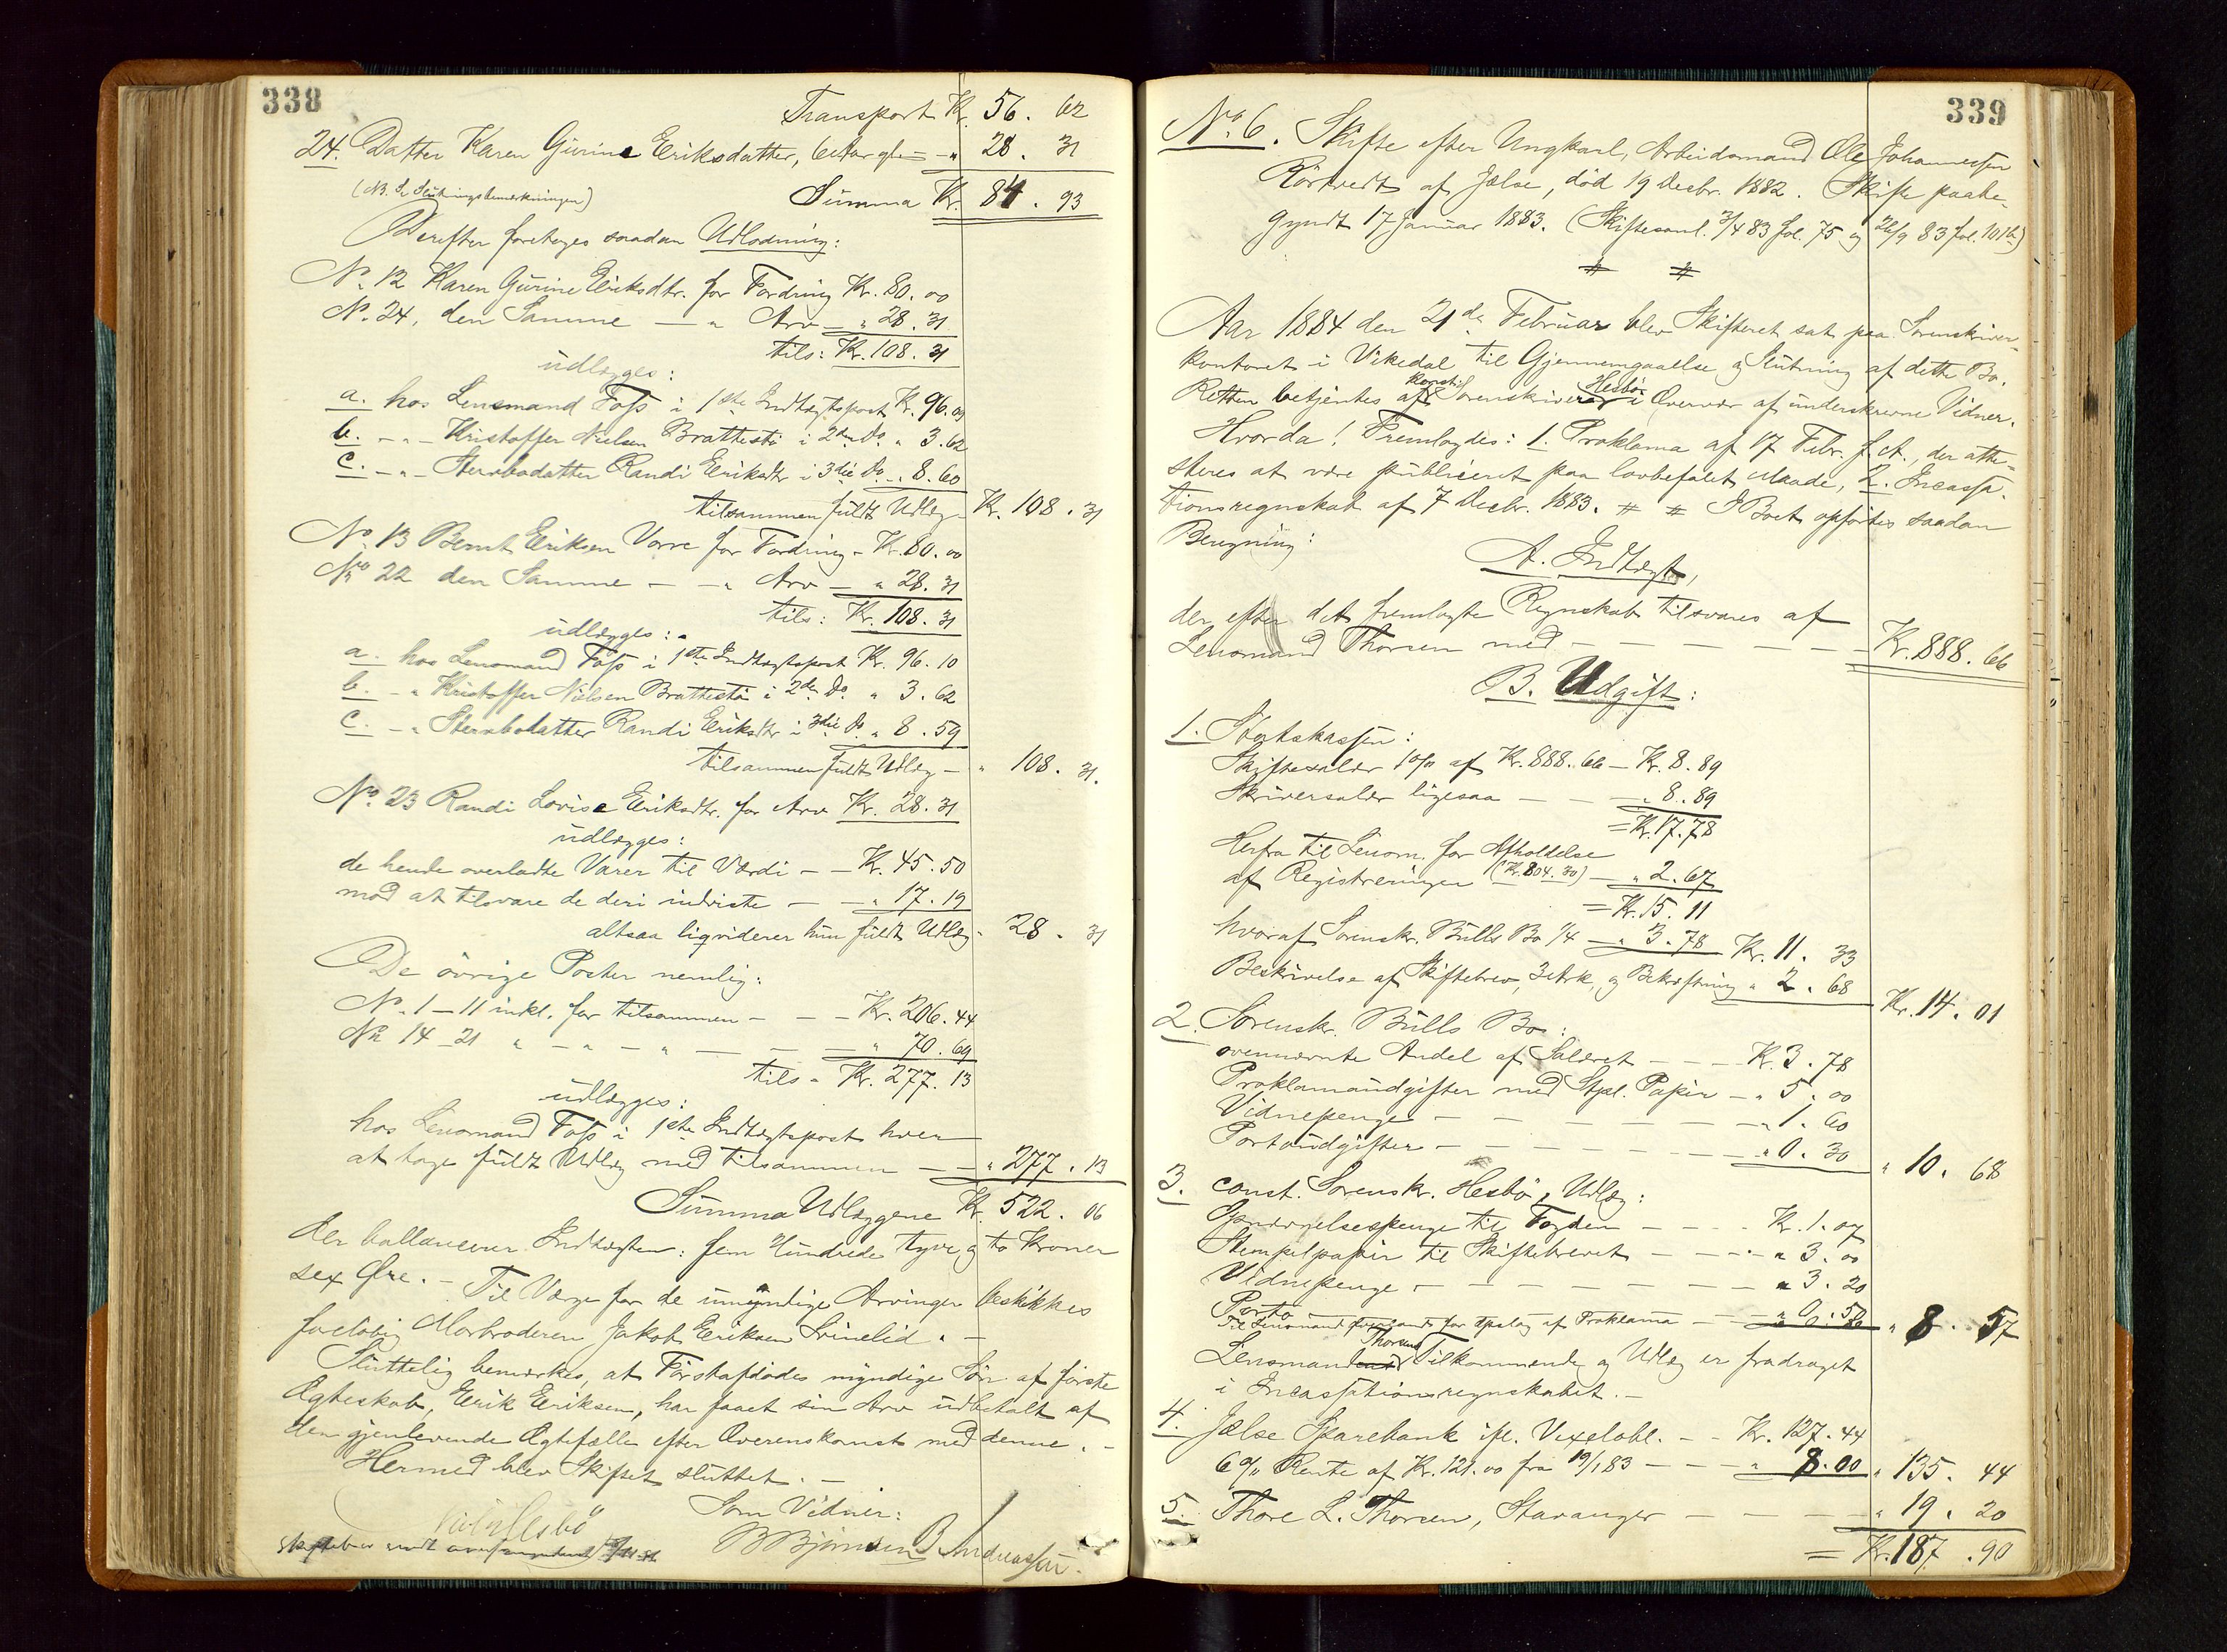 338
Transport Kr. 56. 62
24. Datter Karen Gurine Eriksdatter, ligesaa " 28. 31
(NB. Se Slutningsbemærkningen) Summa Kr. 84. 93
Derefter foretoges saadan Udlodning:
No. 12 Karen Gurine Eriksdtr. for Fordring Kr. 80. 00
No. 24, den Samme — " Arv — " 28. 31
tils: Kr. 108. 31
udlægges:
a. hos Lensmand Foss i 1ste Indtægtspost Kr. 96. 09
b. - " - Kristoffer Nielsen Brattestø i 2den Do. " 3. 62
c. - " - Stervbodatter Randi Eriksdtr i 3die Do. " 8. 60
tilsammen fuldt Udlæg - Kr. 108. 31
No. 13 Bernt Eriksen Vorre for Fordring - Kr. 80. 00
No 22 den Samme — " Arv — " 28. 31
tils: Kr. 108. 31
udlægges:
a. hos Lensmand Foss i 1ste Indtægtspost Kr. 96. 10
b. - " Kristoffer Nielsen Brattestø i 2den Do. " 3. 62
c. - " Stervbodatter Randi Eriksdtr i 3die Do. " 8. 59
tilsammen fuldt Udlæg — " 108. 31.
No. 23 Randi Lovise Eriksdtr. for Arv Kr. 28. 31
udlægges:
de hende overladte Varer til Værdi — Kr. 45. 50
mod at tilsvare de deri indviste — — " 17. 19
altsaa liqviderer hun fuldt Udlæg " 28. 31
De øvrige Poster nemlig:
No. 1—11 inkl. for tilsammen — — Kr. 206. 44
No 14—21 " — " — " — — " 70. 69
tils " Kr. 277. 13
udlægges:
hos Lensmand Foss i 1ste Indtægtspost hver
at tage fuldt Udlæg med tilsammen — " 277. 13
Summa Udlæggene Kr. 522. 06
der ballancerer Indtægten: fem Hundrede tyve og to Kroner
sex Øre. — Til Værge for de umyndige Arvinger beskikkes
foreløbig Morbroderen Jakob Eriksen Svinelid. —
Sluttelig bemærkes, at Førstafdødes myndige Søn af første
Ægteskab, Erik Eriksen, har faaet sin Arv udbetalt af
den gjenlevende Ægtefælle efter Overenskomst med denne. —
Hermed blev Skiftet sluttet. —
Som Vidner:
Hesbø
B Bjørnsen B. Andreassen.
339
No. 6. Skifte efter Ungkarl, Arbeidsmand Ole Johannessen
Rørtvedt af Jelse, død 19 Decbr. 1882. Skifte paabe-
gyndt 17 Januar 1883. (Skiftesaml. 3/4 83 fol. 75 og 26/9 83 fol. 101b)
Aar 1884 den 21de Februar blev Skifteret sat paa Sorenskriver-
kontoret i Vikedal til Gjennemgaaelse og Slutning af dette Bo.
Retten betjentes af konst. Sorenskriver Hesbø i Overvær af underskrevne Vidner.
Hvorda! Fremlagdes: 1. Proklama af 17 Febr. f. A., der atte-
steres at være publiceret paa lovbefalet Maade, 2. Incassa-
tionsregnskab af 7 Decbr. 1883. I Boet opførtes saadan
Beregning:
A. Indtægt,
der efter det fremlagte Regnskab tilsvares af
Lensmand Thorsen med — — — — — Kr. 888. 66
B. Udgift:
1. Statskassen:
Skiftesalær 1 0/0 af Kr. 888. 66 — Kr. 8. 89
Skriversalær ligesaa — — — " 8. 89
= Kr. 17. 78
Herfra til Lensm. for Afholdelse
af Registreringen (Kr. 804. 30) — " 2. 67
= Kr. 15. 11
hvoraf Sorenskr. Bulls Bo 1/4 — " 3. 78 Kr. 11. 33
Beskrivelse af Skiftebrev, 3 Ark, og Bekræftning " 2. 68 Kr. 14. 01
2. Sorenskr. Bulls Bo:
ovennævnte Andel af Salæret — — — Kr. 3. 78
Proklamaudgifter med Stpl. Papir — " 5. 00
Vidnepenge — — — — — " 1. 60
Portoudgifter — — — — — " 0. 30 " 10. 68
3. const. Sorenskr. Hesbø, Udlæg:
til Fogden — — — Kr. 1. 07
Stempelpapir til Skiftebrevet — — — " 3. 00
Vidnepenge — — — — — " 3. 20
Porto
for Opslag af Proklama — " 8. 57
Lensmand Thorsens Tilkommende og Udlæg er fradraget
i Incassationsregnskabet. —
4. Jelse Sparebank ifl. Vexelobl. — — Kr. 127. 44
6 0/0 Rente af Kr. 121. 00 fra 19/1 83 — — " 8. 00 " 135. 44
5. Thore L. Thorsen, Stavanger — — — " 19. 20
= Kr. 187. 90